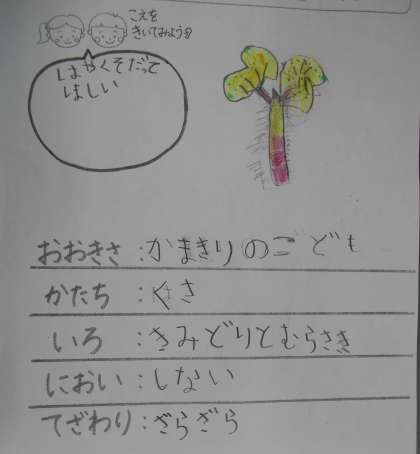 こえを
きいてみよう
はやくそだって
ほしい
おおきさ:かまきりのこども
かたち:くさ
いろ:きみどりとむらさき
におい:しない
てざわり:ざらざら